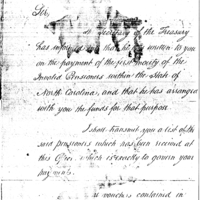 Sir,
Secretary of the Treasury
has informed that written to you
on the payment of the first moiety of the
Invalid Pensioners within the State of
North Carolina, and that he has arranged
with you the funds for that purpose
I shall transmit you a list of the
said pensioners which has been received at
this Office, which is exactly to govern your
payments.
vouchers contained in